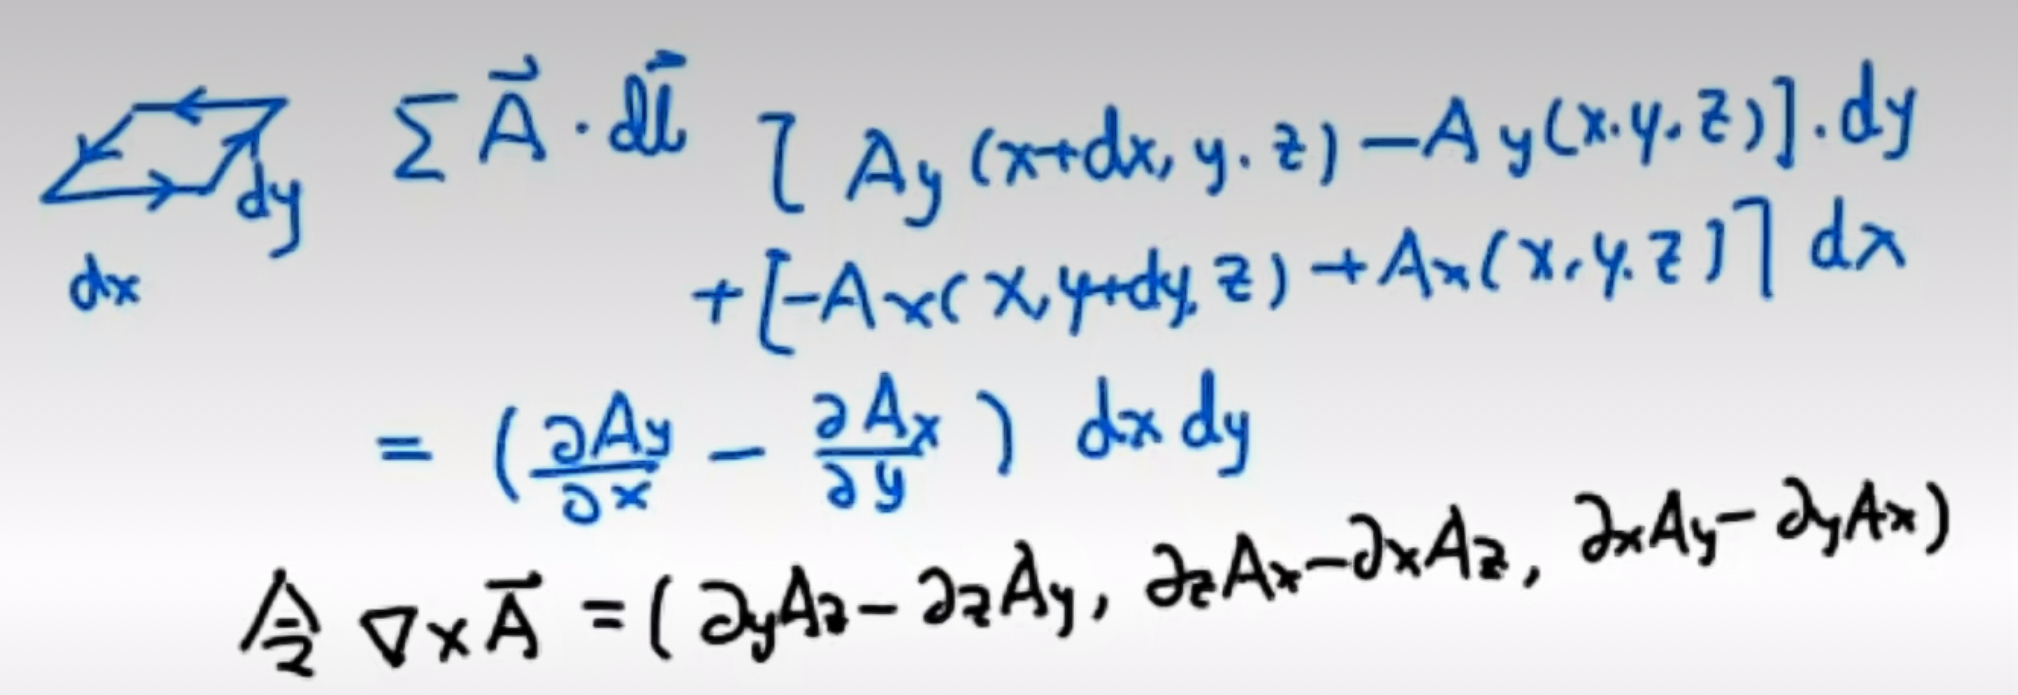 ∑ A⃗ · dl⃗ [ Ay (x+dx, y. z) − Ay(x.y.z)] . dy
dy
dx
+ [−Ax( x, y+dy, z) + Ax(x, y. z)] dx
= (∂Ay/∂x − ∂Ax/∂y) dx dy
令 ∇×A⃗ = ( ∂yAz − ∂zAy, ∂zAx − ∂xAz, ∂xAy − ∂yAx)